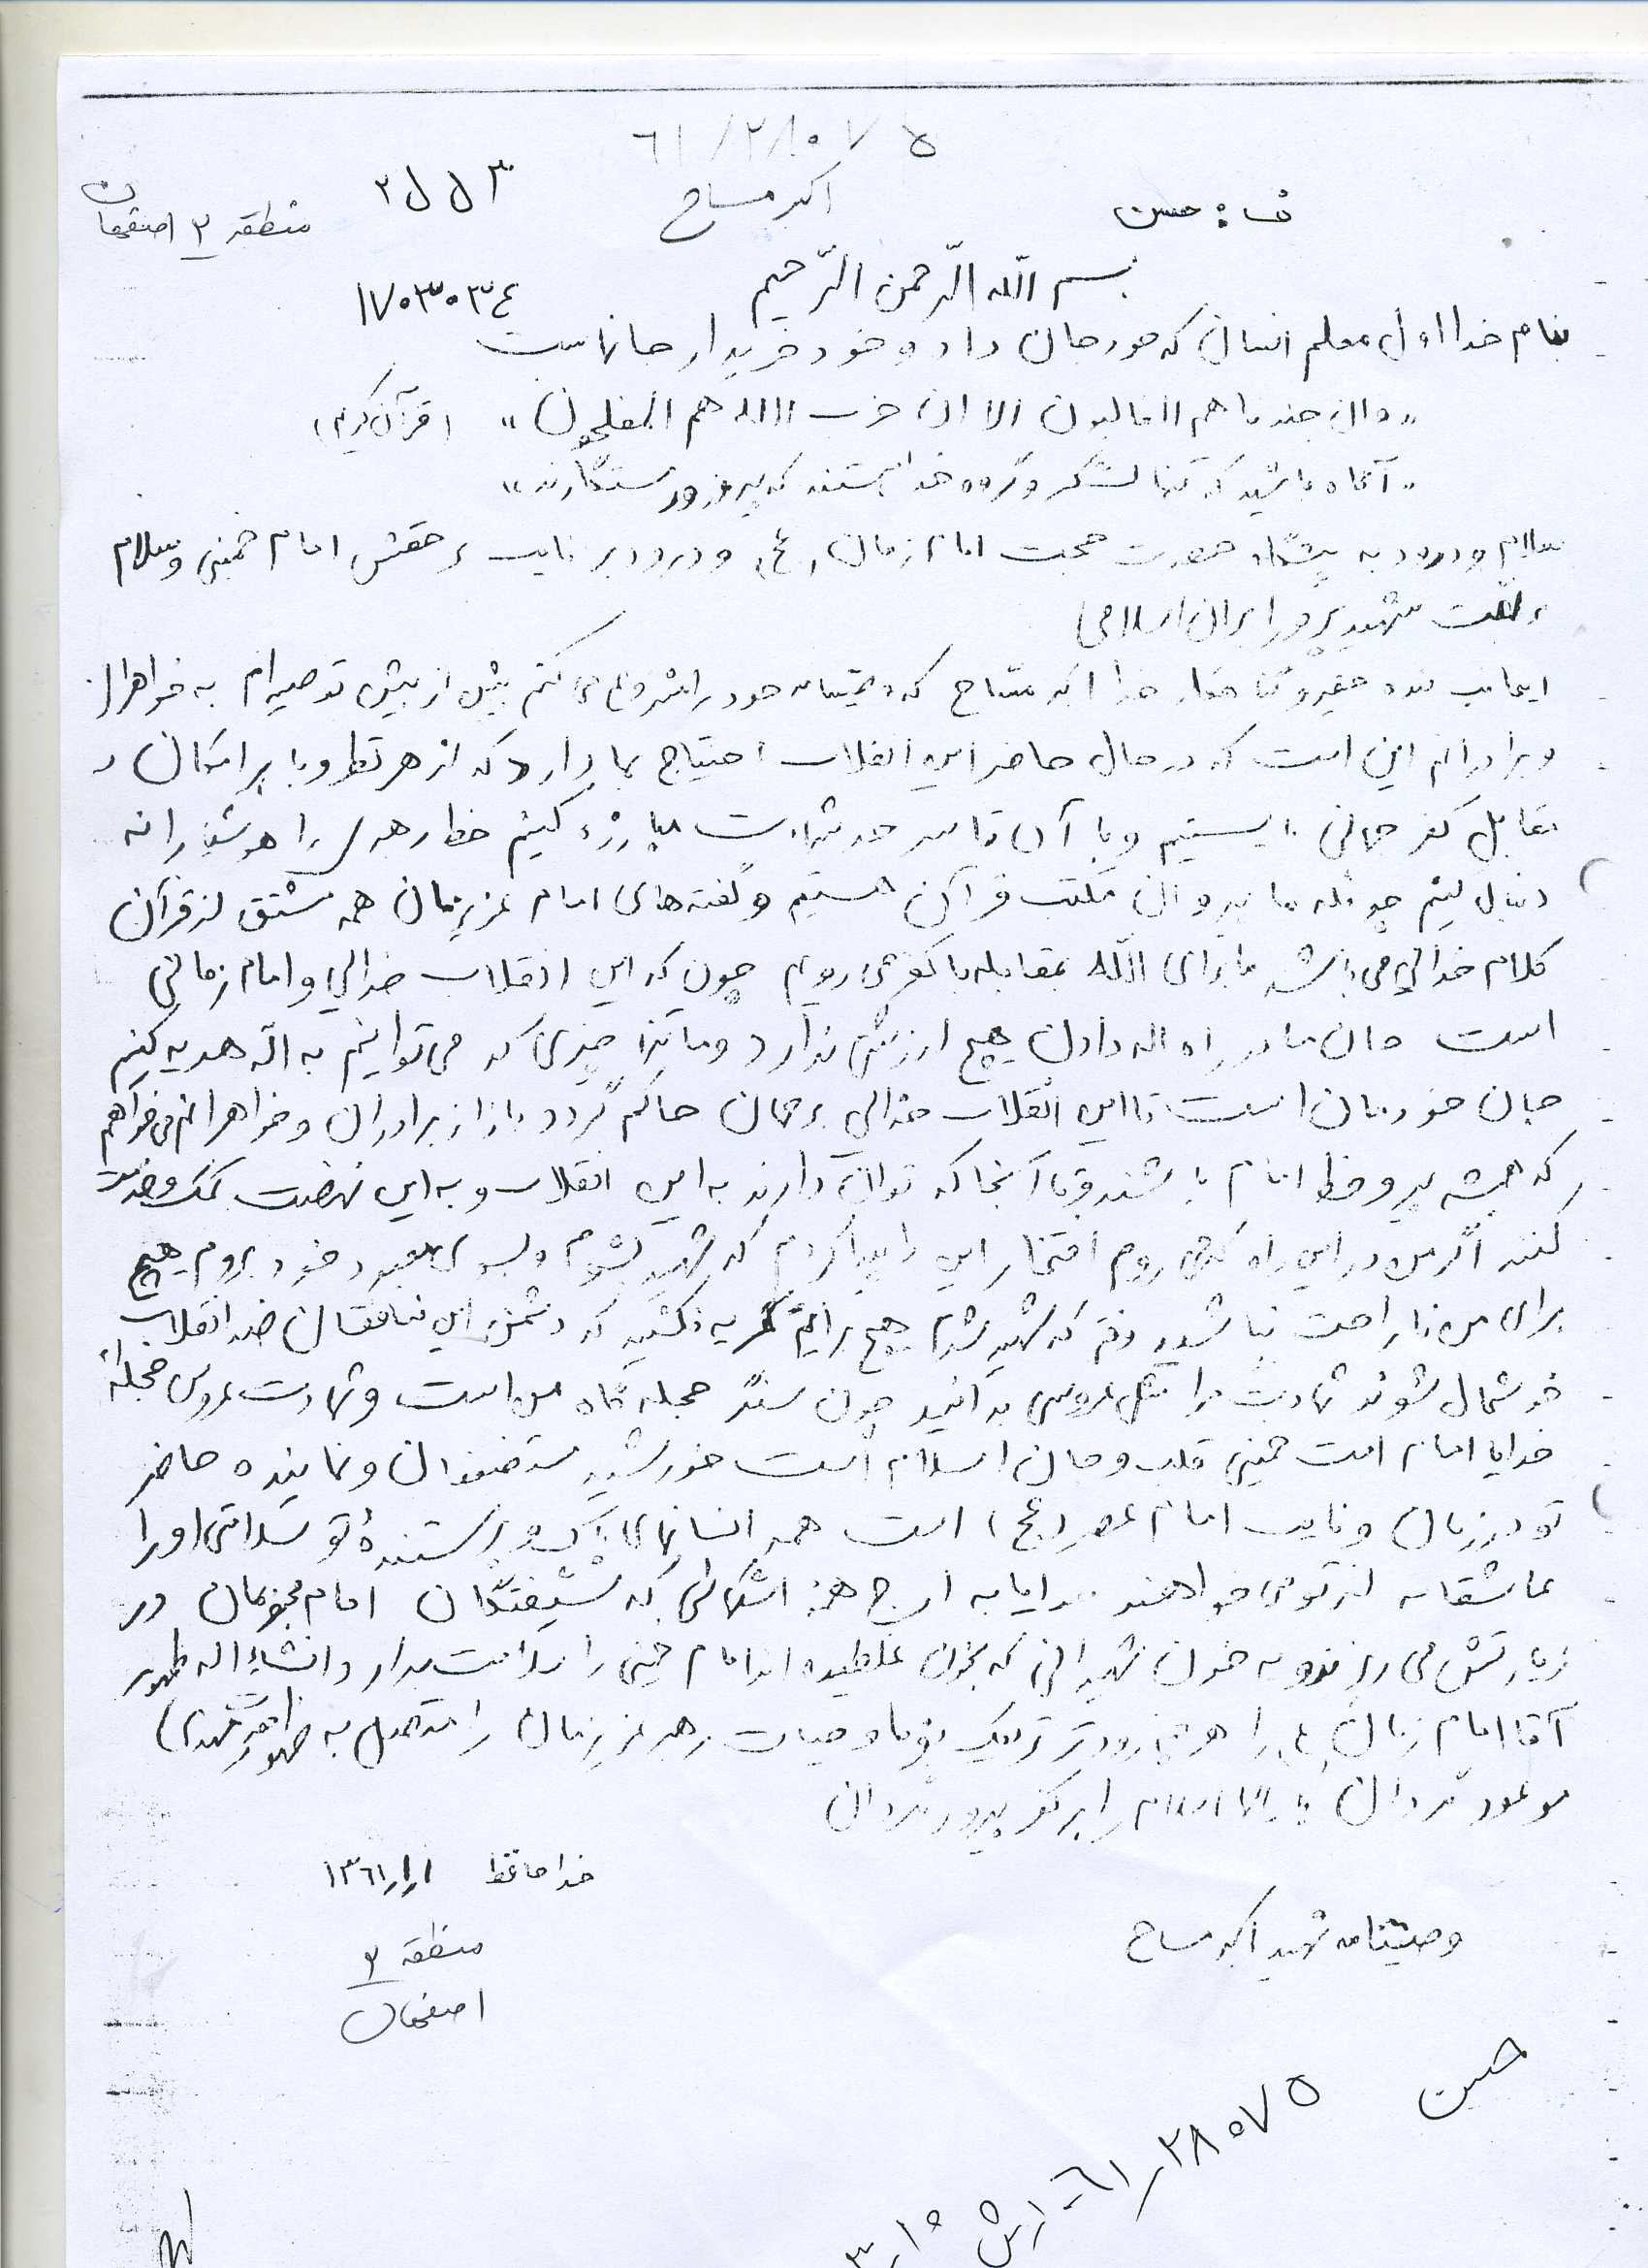 ۶۱/۲۸۰۷۵
ف : حسن اکبر مساح ۳ ل ل ۲ منطقه ۲ اصفهان
بسم اللّه الرّحمن الرّحیم ۱۷۰۳۰۳۴
بنام خدا اول معلم انسان که خود جان داد و خود خریدار جانهاست
«وان جندنا هم الغالبون الا ان حزب الله هم المفلحون» (قرآن کریم)
«آگاه باشید که تنها لشکر و گروه خدا هستند که پیروز و رستگارند»
سلام و درود به پیشگاه حضرت حجت امام زمان (عج) و درود بر نایب بر حقش امام خمینی و سلام
بر ملت شهید پرور ایران اسلامی
اینجانب بنده حقیر و گناهکار خدا اکبر مساح که وصیتنامه خود را شروع می کنم بیش از بیش توصیه ام به خواهران
و برادرانم این است که در حال حاضر این انقلاب احتیاج بما دارد که از هر نظر و با هر امکان در
مقابل کفر جهانی بایستیم و با آن تا سر حد شهادت مبارزه کنیم خط رهبری را هوشیارانه
دنبال کنیم چونکه ما پیروان مکتب قرآن هستیم و گفته های امام عزیزمان همه مشتق از قرآن
کلام خدائی می باشد ما برای اللّه بمقابله با کفر می رویم چون که این انقلاب خدائی و امام زمانی
است جان ما در راه اله دادن هیچ ارزشی ندارد و ما تنها چیزی که می توانیم به اله هدیه کنیم
جان خودمان است تا این انقلاب خدائی بر جهان حاکم گردد باز از برادران و خواهرانم می خواهم
که همیشه پیرو خط امام باشند و تا آنجا که توان دارند به این انقلاب و به این نهضت کمک و خدمت
کنند اگر من در این راه که می روم افتخار این را پیدا کردم که شهید بشوم و بسوی معبود خود بروم هیچ
برای من ناراحت نباشید وقتی که شهید شدم هیچ برایم گریه نکنید که دشمن این منافقان ضد انقلاب
خوشحال شوند شهادت مرا مثل عروسی بدانید چون سنگر حجله گاه من است و شهادت عروس حجله‌ام
خدایا امام امت خمینی قلب و جان اسلام است خورشید مستضعفان و نماینده حاضر
تو در زمان و نایب امام عصر (عج) است همه انسانهای پاک و پرستندهٔ تو سلامتی او را
عاشقانه از تو می خواهند خدایا به ارج همه اشکهائی که شیفتگان امام محبوبمان در
زیارتش می ریزند و به خون شهیدانی که بخون غلطیده اند امام خمینی را سلامت بدار و انشاء اله ظهور
آقا امام زمان (عج) را هر چه زودتر نزدیک بفرما و حیات رهبر عزیزمان را متصل به ظهور مهدی
موعود گردان اسلام را بر کفر پیروز گردان
خدا حافظ ۱۳۶۱/۱/۱
وصیتنامه شهید اکبر مساح
منطقه ۲
اصفهان
حسن
۶۱/۲۸۰۷۵